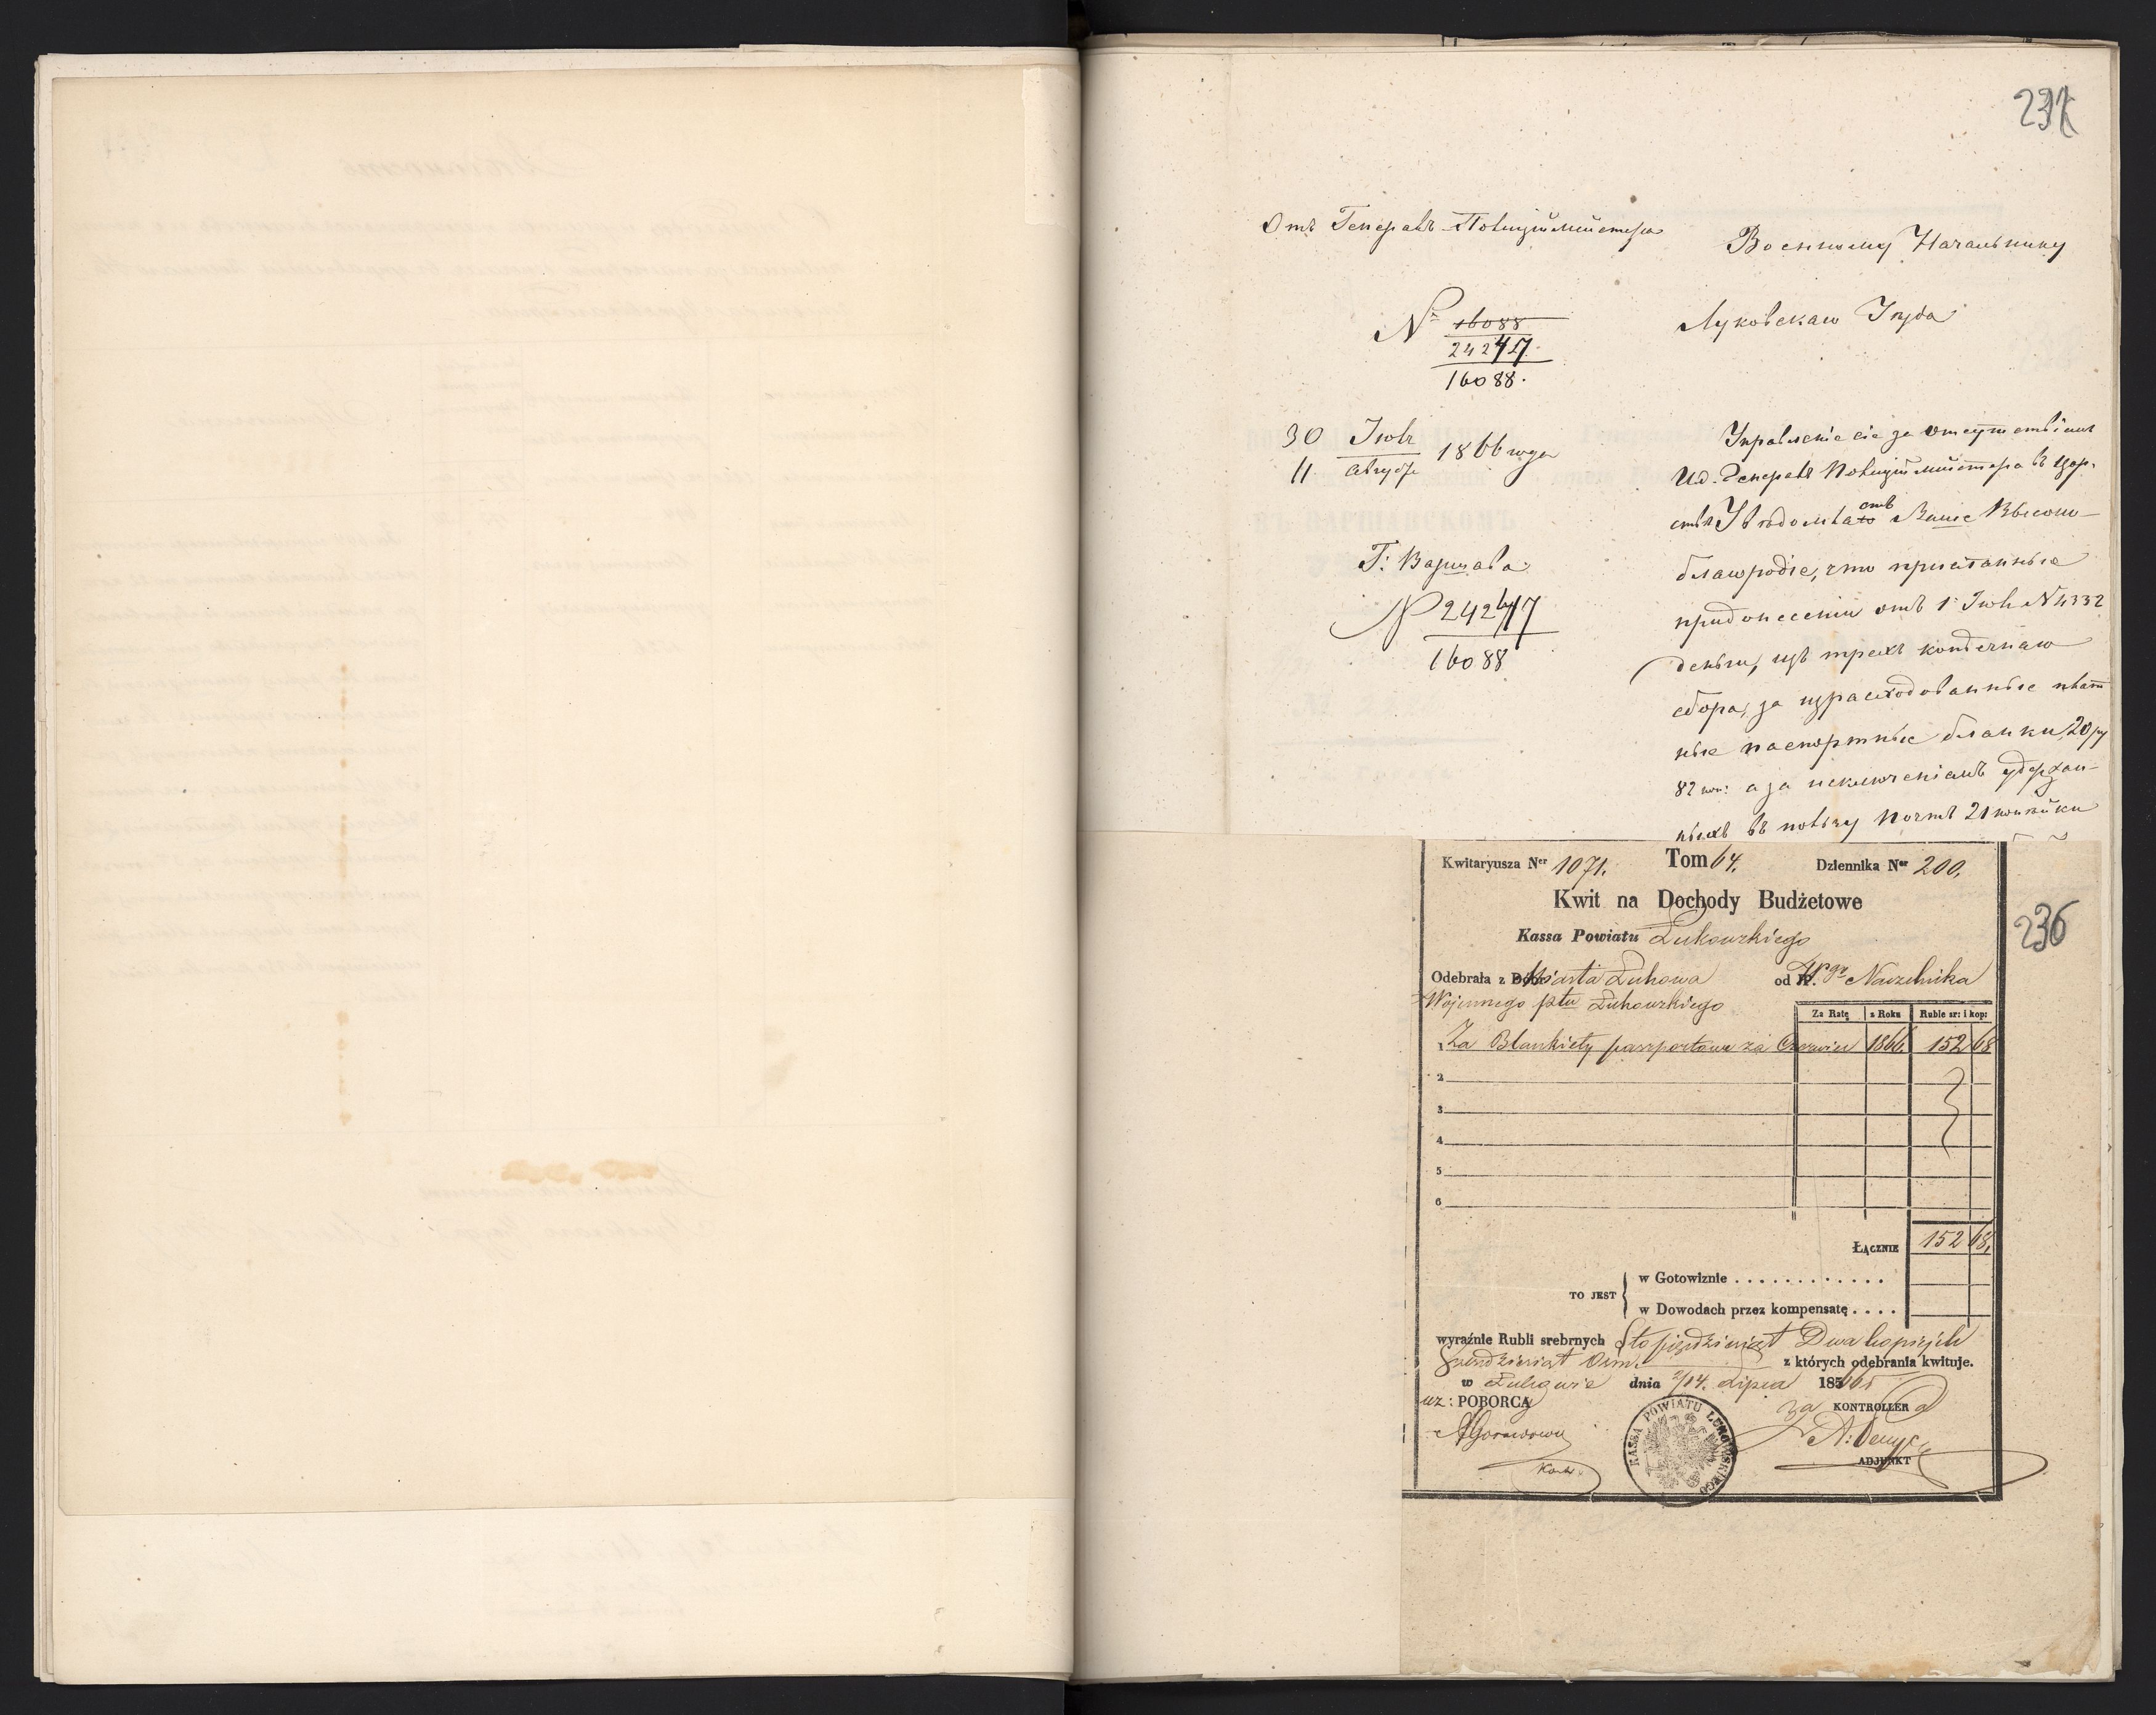 237
Отъ Генералъ-Полицiймейстера
Военному Начальнику
Луковскаго Уѣзда
№ 16088
24247
16088.
30 Iюля
11 Августа 1866 года
Г: Варшава
№ 24247
16088
Управленiе сiе за отсутствiемъ
Ид. Генералъ Полицiймейстера въ Цар-
ствѣ Увѣдомляетъ Ваше Высоко-
благородiе, что присланные
при донесенiи отъ 1 Iюля № 4332
деньги, изъ трехъ копѣечнаго
сбора, за израсходованные плат
ные паспортные бланки, 20 ру
82 коп: а за исключенiемъ удержан-
ныхъ въ пользу Почтъ 21 копѣйки
Kwitaryusza Ner 1071. Tom 64. Dziennika Ner 200.
Kwit na Dochody Budżetowe
Kassa Powiatu Łukowskiego
236
Odebrała z Dóbr Miasta Łukowa od W. Naczelnika
Wojennego ptu Łukowskiego
Za Ratę z Roku Ruble sr: i kop:
1 Za Blankiety passportowe za Czerwiec 1866. 152 68
2
3
4
5
6
ŁĄCZNIE 152 68.
TO JEST
w Gotowiznie . . . . . . . . . . . .
w Dowodach przez kompensatę . . . .
wyraźnie Rubli srebrnych Stopięćdziesiąt Dwa kopiejek
sześdziesiąt ośm. z których odebrania kwituje.
w Łukowie dnia 2/14. Lipca 1866
wz: POBORCA
za KONTROLLER a
ADJUNKT
KASSA POWIATU ŁUKOWSKIEGO